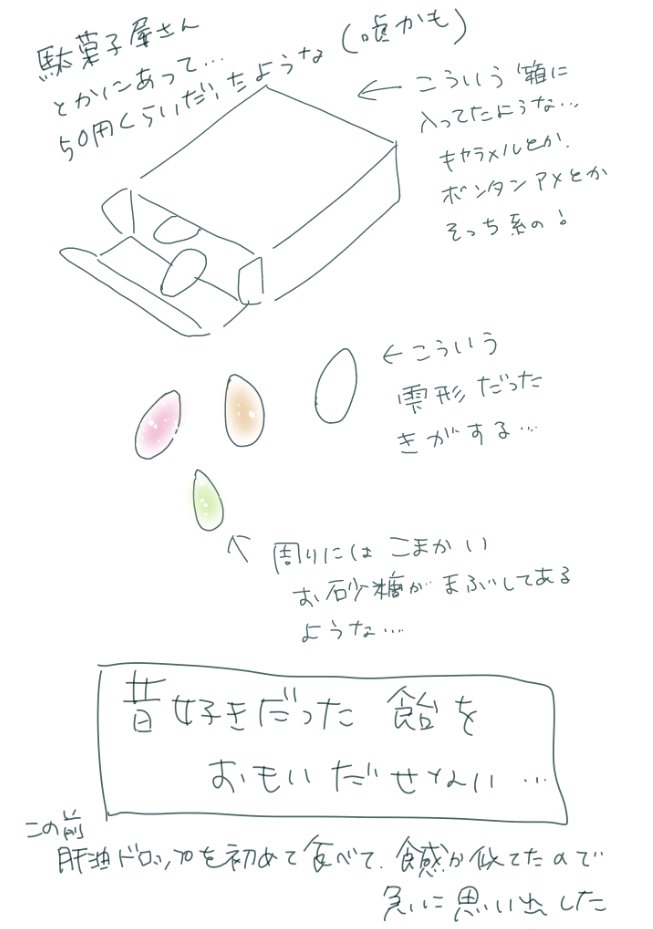 駄菓子屋さん
とかにあって…
50円くらいだったような(嘘かも)
←こういう箱に
入ってたような…
キャラメルとか
ボンタンアメとか
そっち系の!
←こういう
雫形だった
きがする…
周りにはこまかい
お砂糖がまぶしてある
ような…
昔好きだった飴を
おもいだせない…
この前
肝油ドロップを初めて食べて、食感が似てたので
急に思い出した